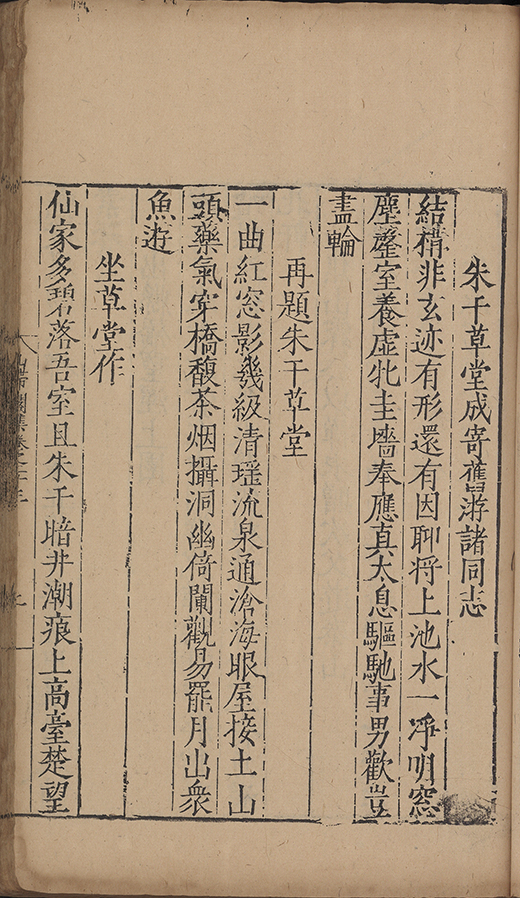 朱干草堂成寄舊游諸同志
結構非玄迹有形還有因聊将上池水一凈明窓
塵室養虛牝圭墻奉應真太息驅馳事男歡豈
盡輪
再題朱干草堂
一曲紅窓影幾級清瑶流泉通滄海眼屋接土山
頭藥氣穿橋馥茶烟攝洞幽倚闌觀易罷月出衆
魚逰
坐草堂作
仙家多碧落吾室且朱干暗井潮痕上高臺楚望